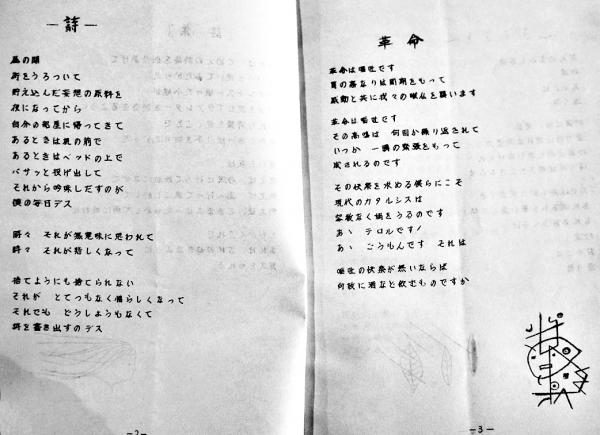 ―詩―
昼の間
街をうろついて
貯え込んだ妄想の原料を
夜になってから
自分の部屋に帰ってきて
あるときは机の前で
あるときはベッドの上で
バサッと投げ出して
それから吟味しだすのが
僕の毎日デス
時々 それが無意味に思われて
時々 それが悲しくなって
捨てようにも捨てられない
それが とてつもなく憎らしくなって
それでも どうしようもなくて
詩を書き出すのデス
―2―
革命
革命は嘔吐です
胃の高なりは周期をもって
感動と共に我々の喉を襲います
革命は嘔吐です
その高鳴は 何回か繰り返されて
いつか 一瞬の緊張をもって
成されるのです
その伏祭を求める僕らにこそ
現代のカタルシスは
容赦なく禍をうるのです
あゝ テロルです!
あゝ ごうもんです それは
嘔吐の伏祭が無いならば
何故に酒など飲むものですか
―3―